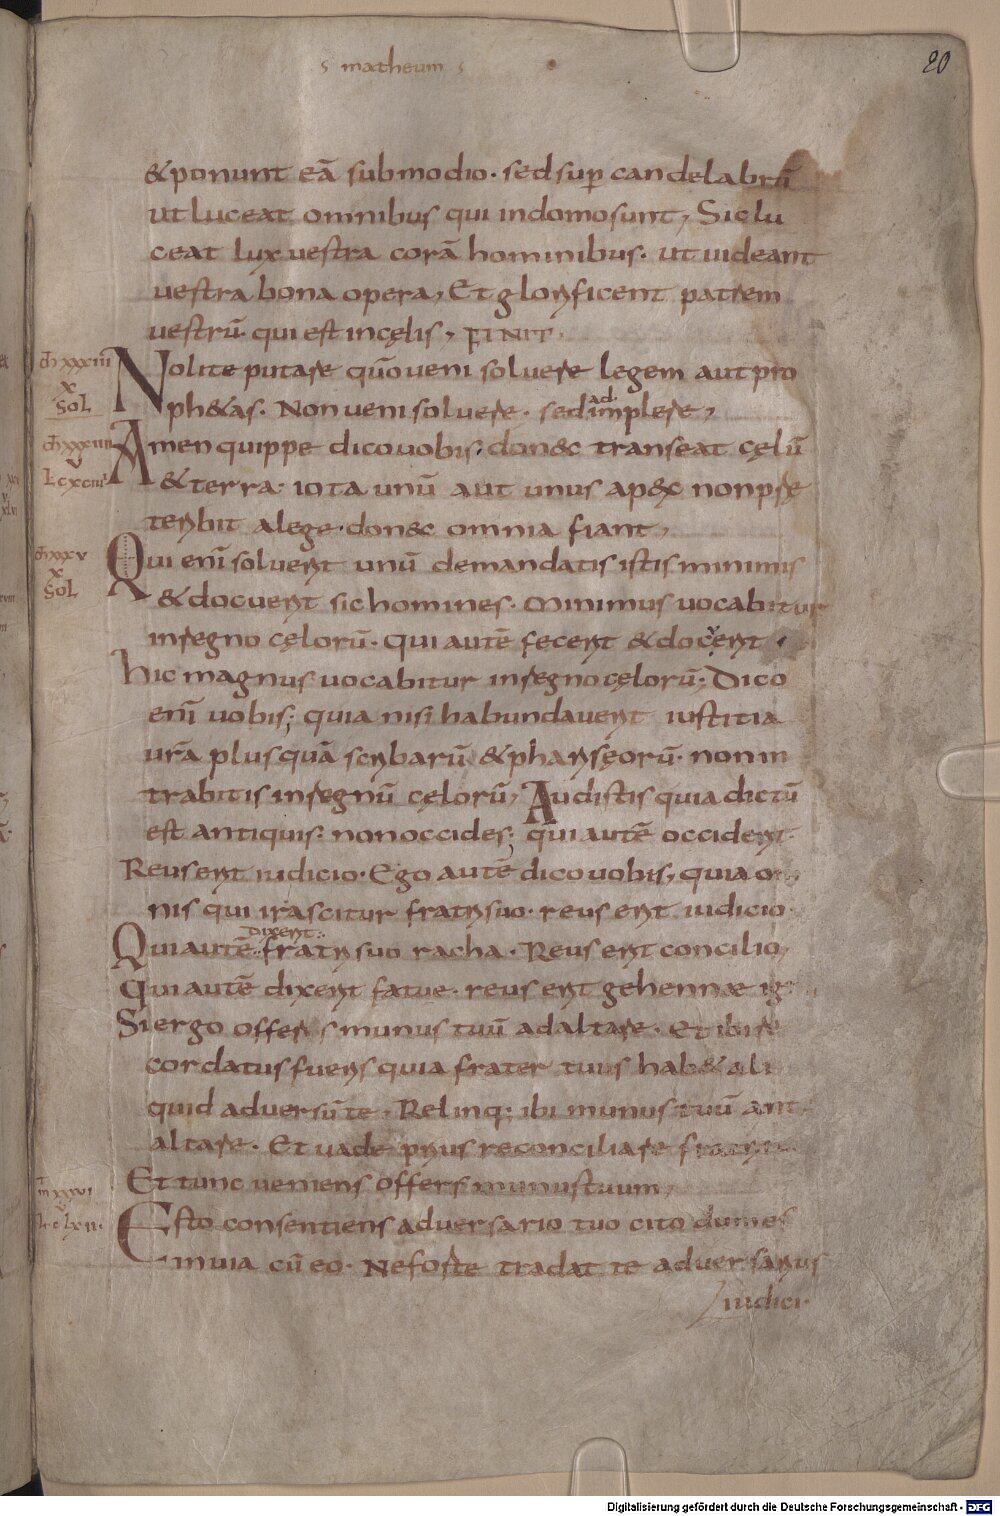 s matheum s
20
& ponunt eā sub modio. sed sup candelabrū
ut luceat omnibus qui indomo sunt, Sic lu
ceat lux vestra corā hominibus. ut uideant
vestra bona opera, Et gloryficent patrem
vestrū. qui est incęlis, FINIT.
Nolite putare quō veni solvere legem aut pro
ph&as. Non veni solvere. sed adimplere,
Amen quippe dico vobis; don&c transeat cęlū
& terra. iota unū aut unus ap&x non prę
terybit alege. don&c omnia fiant,
Qui enī solveryt unū demandatis istis minimis
& docueryt sic homines. Minimus vocabitur
inregno cęlorū. Qui autē feceryt & doceryt
hic magnus vocabitur inregno cęlorū; Dico
enī vobis; quia nisi habundaveryt iustitia
urā plus quā scrybarū & pharysęorū. non in
trabitis inregnū cęlorū, Audistis quia dictū
est antiquis: non occides; qui autē occideryt
Reus eryt iudicio. Ego autē dico vobis, quia om
nis qui irascitur fratry suo. reus eryt iudicio.
dixeryt
Qui autē fratry suo racha. Reus eryt concilio,
Qui autē dixeryt fatue. reus eryt gehennæ ig
Si ergo offers munus tuū ad altare. Et ibi re
cordatus fuerys quia frater tuus hab& ali
quid adversū te, Relinq; ibi munus tuū ant
altare. Et vade pryus reconciliare fratry
Et tunc veniens offers munus tuum,
Esto consentiens adversario tuo cito dum es
in uia cū eo. Ne forte tradat te adversaryus
iudici.
m̄ xxxiii
x
SOL
m̄ xxxiiii
v
Lc xciiii
m̄ xxxv
x
SOL
m̄ xxxvi
v
Lc lxii.
Digitalisierung gefördert durch die Deutsche Forschungsgemeinschaft - DFG